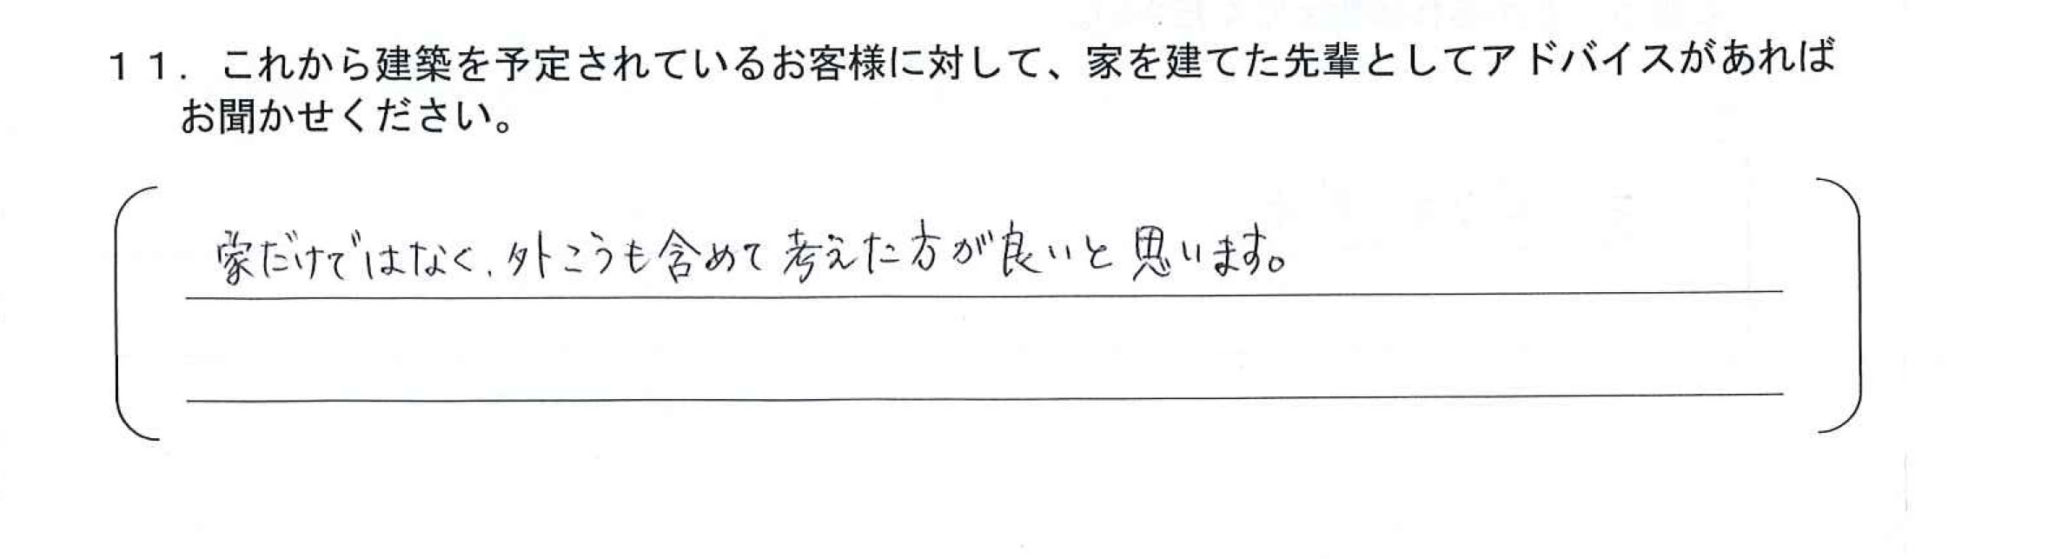 １１．これから建築を予定されているお客様に対して、家を建てた先輩としてアドバイスがあれば
お聞かせください。
家だけではなく、外こうも含めて考えた方が良いと思います。